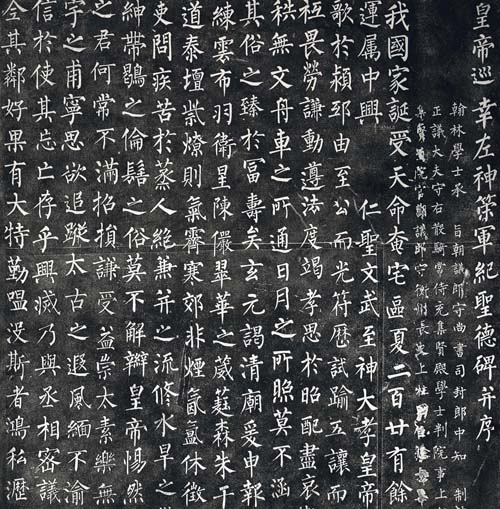 皇帝巡幸左神策軍紀聖德碑并序
翰林學士承 旨朝議郎守尚書司封郎中知 制誥
正議大夫守右散騎常侍充集賢殿學士判院事上
集賢直院官朝議郎守衡州長史上柱國
我國家誕受天命奄宅區夏二百廿有餘
運属中興 仁聖文武至神大孝皇帝
歌於頼邸由至公而光符歷試踰五讓而
極畏勞謙動遵法度竭孝思於昭配盡哀
秩無文舟車之所通日月之所照莫不涵
其俗之臻於冨壽矣玄元謁清廟爰申報
練雲布羽衛星陳儼翠華之葳蕤森朱干
道泰壇祡燎則氣霽寒郊非煙氤氳休徵
吏問疾苦於蒸人絕兼并之流修水旱之
紳帶鶡之倫髽之俗莫不解辮皇帝惕然
之君何常不滿招損謙受益崇太素樂無
字之甫寧思欲追蹤太古之遐風緬不渝
信於使其忘亡存乎興滅乃與丞相密議
全其鄰好果有大特勤嗢沒斯者鴻私瀝